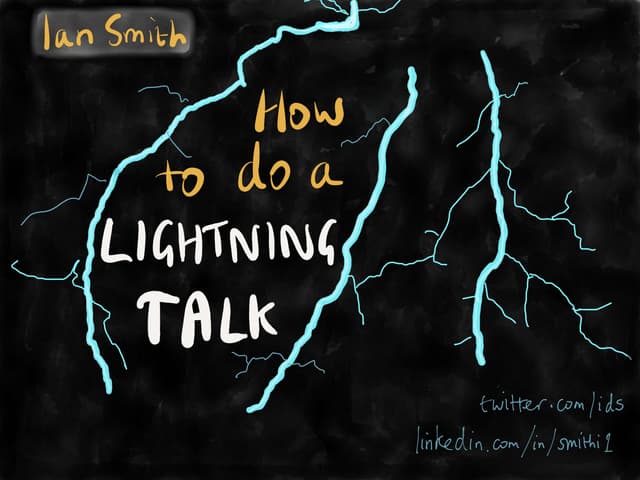 Ian Smith
How
to do a
LIGHTNING
TALK
twitter.com/ids
linkedin.com/in/smithi1